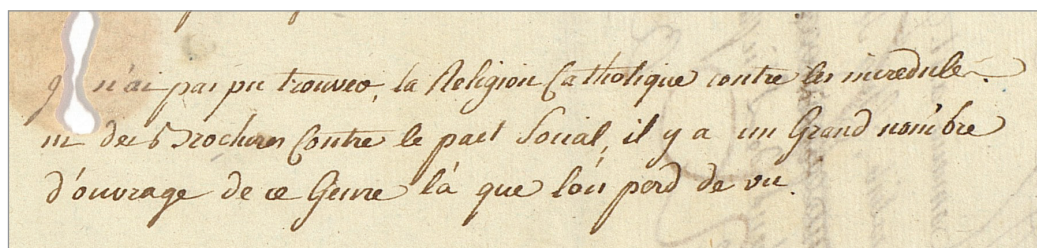 n'ai pas pu trouver, la Religion Catholique contre les incredules
ni des Brochures Contre le pact Social, il y a un Grand nombre
d'ouvrage de ce Genre là que l'on perd de vu.